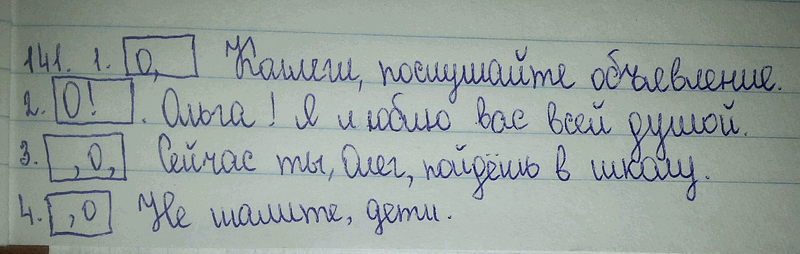 141. 1. О, Коллеги, послушайте объявление.
2. О! . Ольга! Я люблю вас всей душой.
3. , О, Сейчас ты, Олег, пойдёшь в школу.
4. , О Не шалите, дети.